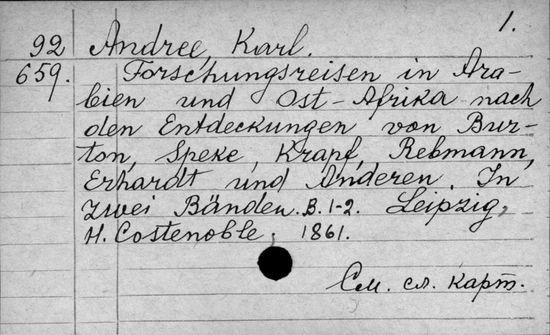 1.
92 Andree, Karl.
659. Forschungsreisen in Ara-
bien und Ost-Afrika nach
den Entdeckungen von Bur-
ton, Speke, Krapf, Rebmann,
Erhardt und Anderen. In
zwei Bänden. B. 1-2. Leipzig,
H. Costenoble, 1861.
См. сл. карт.